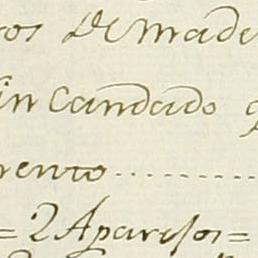 ros de made
in candado q
rento..........
= 2 Aparejos =